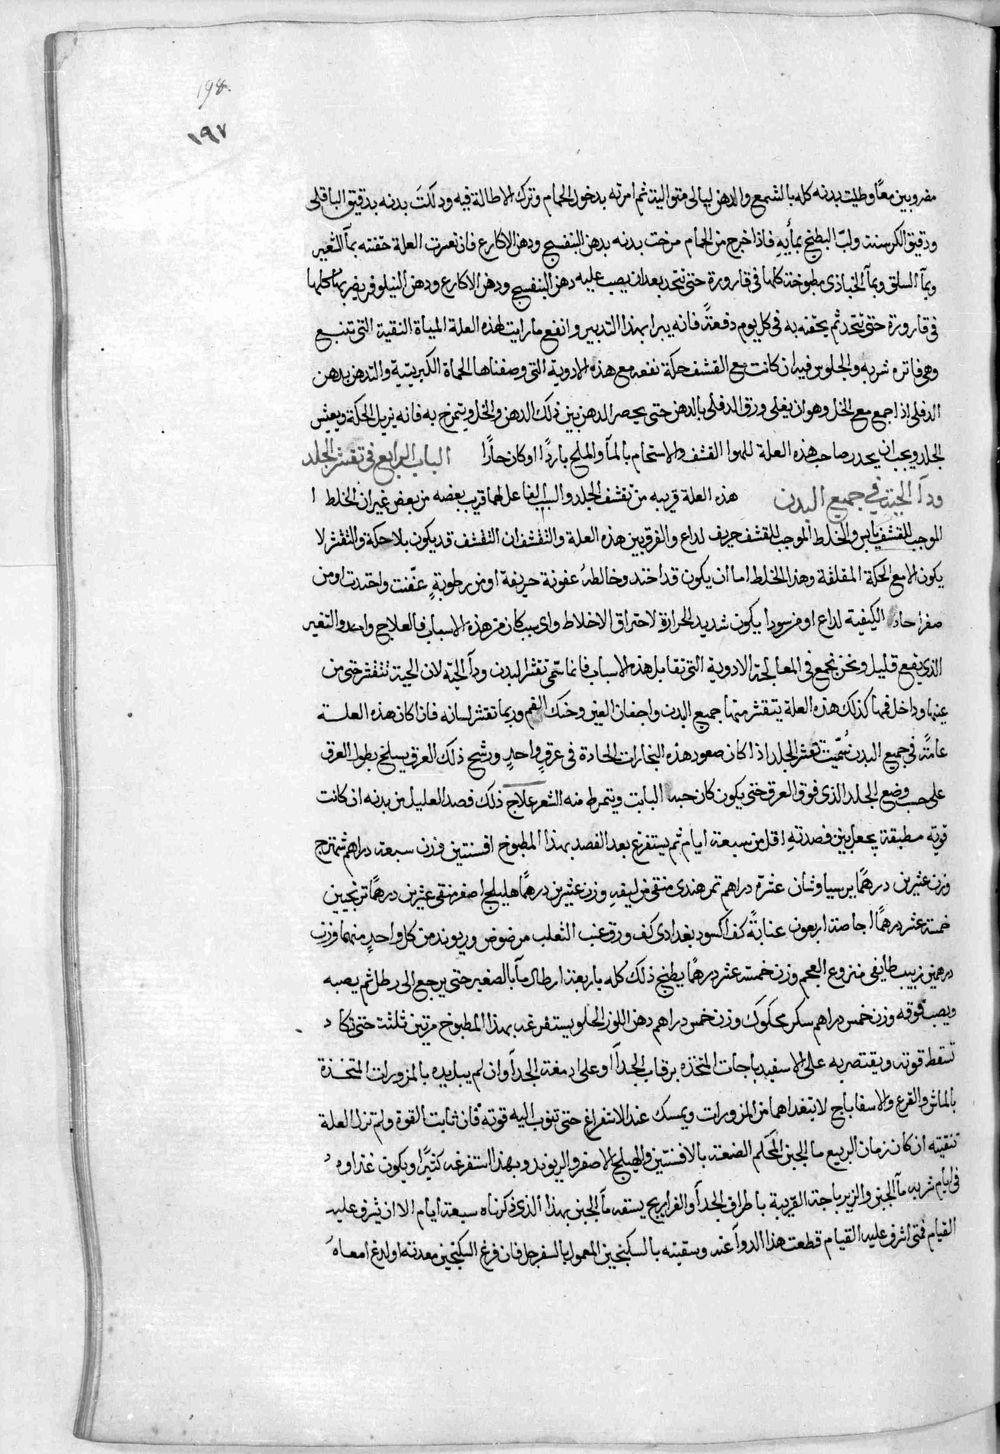 198.
١٩٧
مضروبين معًا وطليت بدنه كله بالشمع والدهن ليالى متوالية ثم امرته بدخول الحمام وترك الاطالة فيه ودلكت بدنه بدقيق الباقلى
ودقيق الكرسنة ولب البطيخ بمأيه فاذا خرج من الحمام مرخت بدنه بدهن البنفسج ودهن الاكارع فان تعسرت العلة حقنته بمآ الشعير
وبمآ السلق وبمآ الخبازى مطبوخة كلها فى قارورة حتى تتحد بعد ان يصب عليه دهن البنفسج ودهن الاكارع ودهن النيلوفر يضربها كلها
فى قارورة حتى تتحد ثم يحقنه به فى كل يوم دفعةً فانه يبرا بهذا التدبير وانفع ما رايت لهذه العلة المياة النقية التى تنبع
وهى فاتره شربه والجلوس فيه ان كانت مع القشف حكة نفعه مع هذه الادوية التى وصفناها الحماة الكبريتية والتدهن بدهن
الدفلى اذا جمع مع الخل وهو ان يغلى ورق الدفلى بالدهن حتى يحصر الدهن بين ذلك الدهن والخل ويتمرخ به فانه يزيل الحكة وينعش
الجلد ويجب ان يحدر صاحب هذه العلة للهوا القشف والاستحمام بالمآ والملح باردًا اوكان حارًا الباب الرابع فى تقشر الجلد
ودآ الحية فى جميع البدن هذه العلة قريبه من تقشف الجلد والسبب الفاعل لهما قريب بعضه من بعض غير ان الخلط ا
الموجب للقشف يابس والخلط الموجب للقشف حريف لداع والفرق بين هذه العلة والتقشف ان التقشف قد يكون بلا حكة والتقشر لا
يكون الا مع الحكة المقلقة وهذا الخلط اما ان يكون قد احتد وخالطهُ عفونة حريفة او من رطوبةٍ عفنت واحتدت او من
صفرا حاد الكيفية لداع او من سودا يكون شديد الحرارة لاحتراق الاخلاط واى سبب كان من هذه الاسباب فالعلاج واحد والتغير
الذى يقع قليل ونحن نجمع فى المعالجة الادوية التى تقابل هذه الاسباب فانما سمى تقشر البدن ودآ الحية لان الحية تتقشر حتى من
عينها وداخل فمها كذلك هذه العلة يتقشر منها جميع البدن واجفان العين وحنك الفم وربما تقشر لسانه فاذا كان هذه العلـة
عامةً فى جميع البدن سُمّيت تقشر الجلد اذا كان صعود هذه البخارات الحادة فى عرقٍ واحدٍ ورشح ذلك العرق يسلخ بطول العرق
على حسب وضع الجلد الذى فوق العرق حتى يكون كان حبه البابت ويتمرط منه الشعر علاج ذلك فصد العليل من بدنه ان كانت
قوته مطبقة يجعل بين فصدتهِ اقل من سبعة ايام ثم يستفرغ بعد الفصد بهذا المطبوخ افسنتين وزن سبعة دراهم شهترج
وزن عشرين درهمًا برسياوشان عشرة دراهم تمر هندى منقى من ليفهِ وزن عشرين درهمًا هليلج اصفر منقى عشرين درهمًا ترنجبين
خمسة عشر درهمًا اجاصة اربعون عنابةً كف اكسود بغدادى كف ورق عنب الثعلب مرضوض وريوند من كل واحدٍ منهما وزن
درهمين زبيب طايفى منزوع العجم وزن خمسة عشر درهمًا يطبخ ذلك كله باربعة ارطال مآ بالصغير حتى يرجع الى رطل ثم يصبه
ويصب فوقه وزن خمس دراهم سكر محكوك وزن خمس دراهم دهن اللوز الحلو يستفرغه بهذا المطبوخ مرتين ثلثة حتى تكا د
تسقط قوته ويقتصر به على الاسفيدباجات المتخذه برقاب الجدآ او على ادمغة الجدآ وان لم يبلديده بالمزورات المتخذة
بالماش والقرع والاسفاباج لا بتغداهما من المزورات ويمسك عند الاستفراغ حتى تنوب اليه قوته فان ثابت القوة ولم تزل العلة
تنقيته ان كان زمان الربيع ما الجبن المحكم الصنعة بالافسنتين والهليلج الاصفر والريوند وبهذا استفرغه كثيرًا ويكون غذاوهُ
فى ايام شربه مآ الجبن والزيرباجة القريبة باطراف الجدآ والفراريج يسقه مآ الجبن بهذا الذى ذكرناه سبعة ايام الا ان يشرف عليه
القيام فمتى اشرف عليه القيام قطعت هذا الدوآ عنه وسقيته بالسكنجبين المعمول بالسفرجل فان فرغ السكنجبين معدته او لدغ امعاهُ